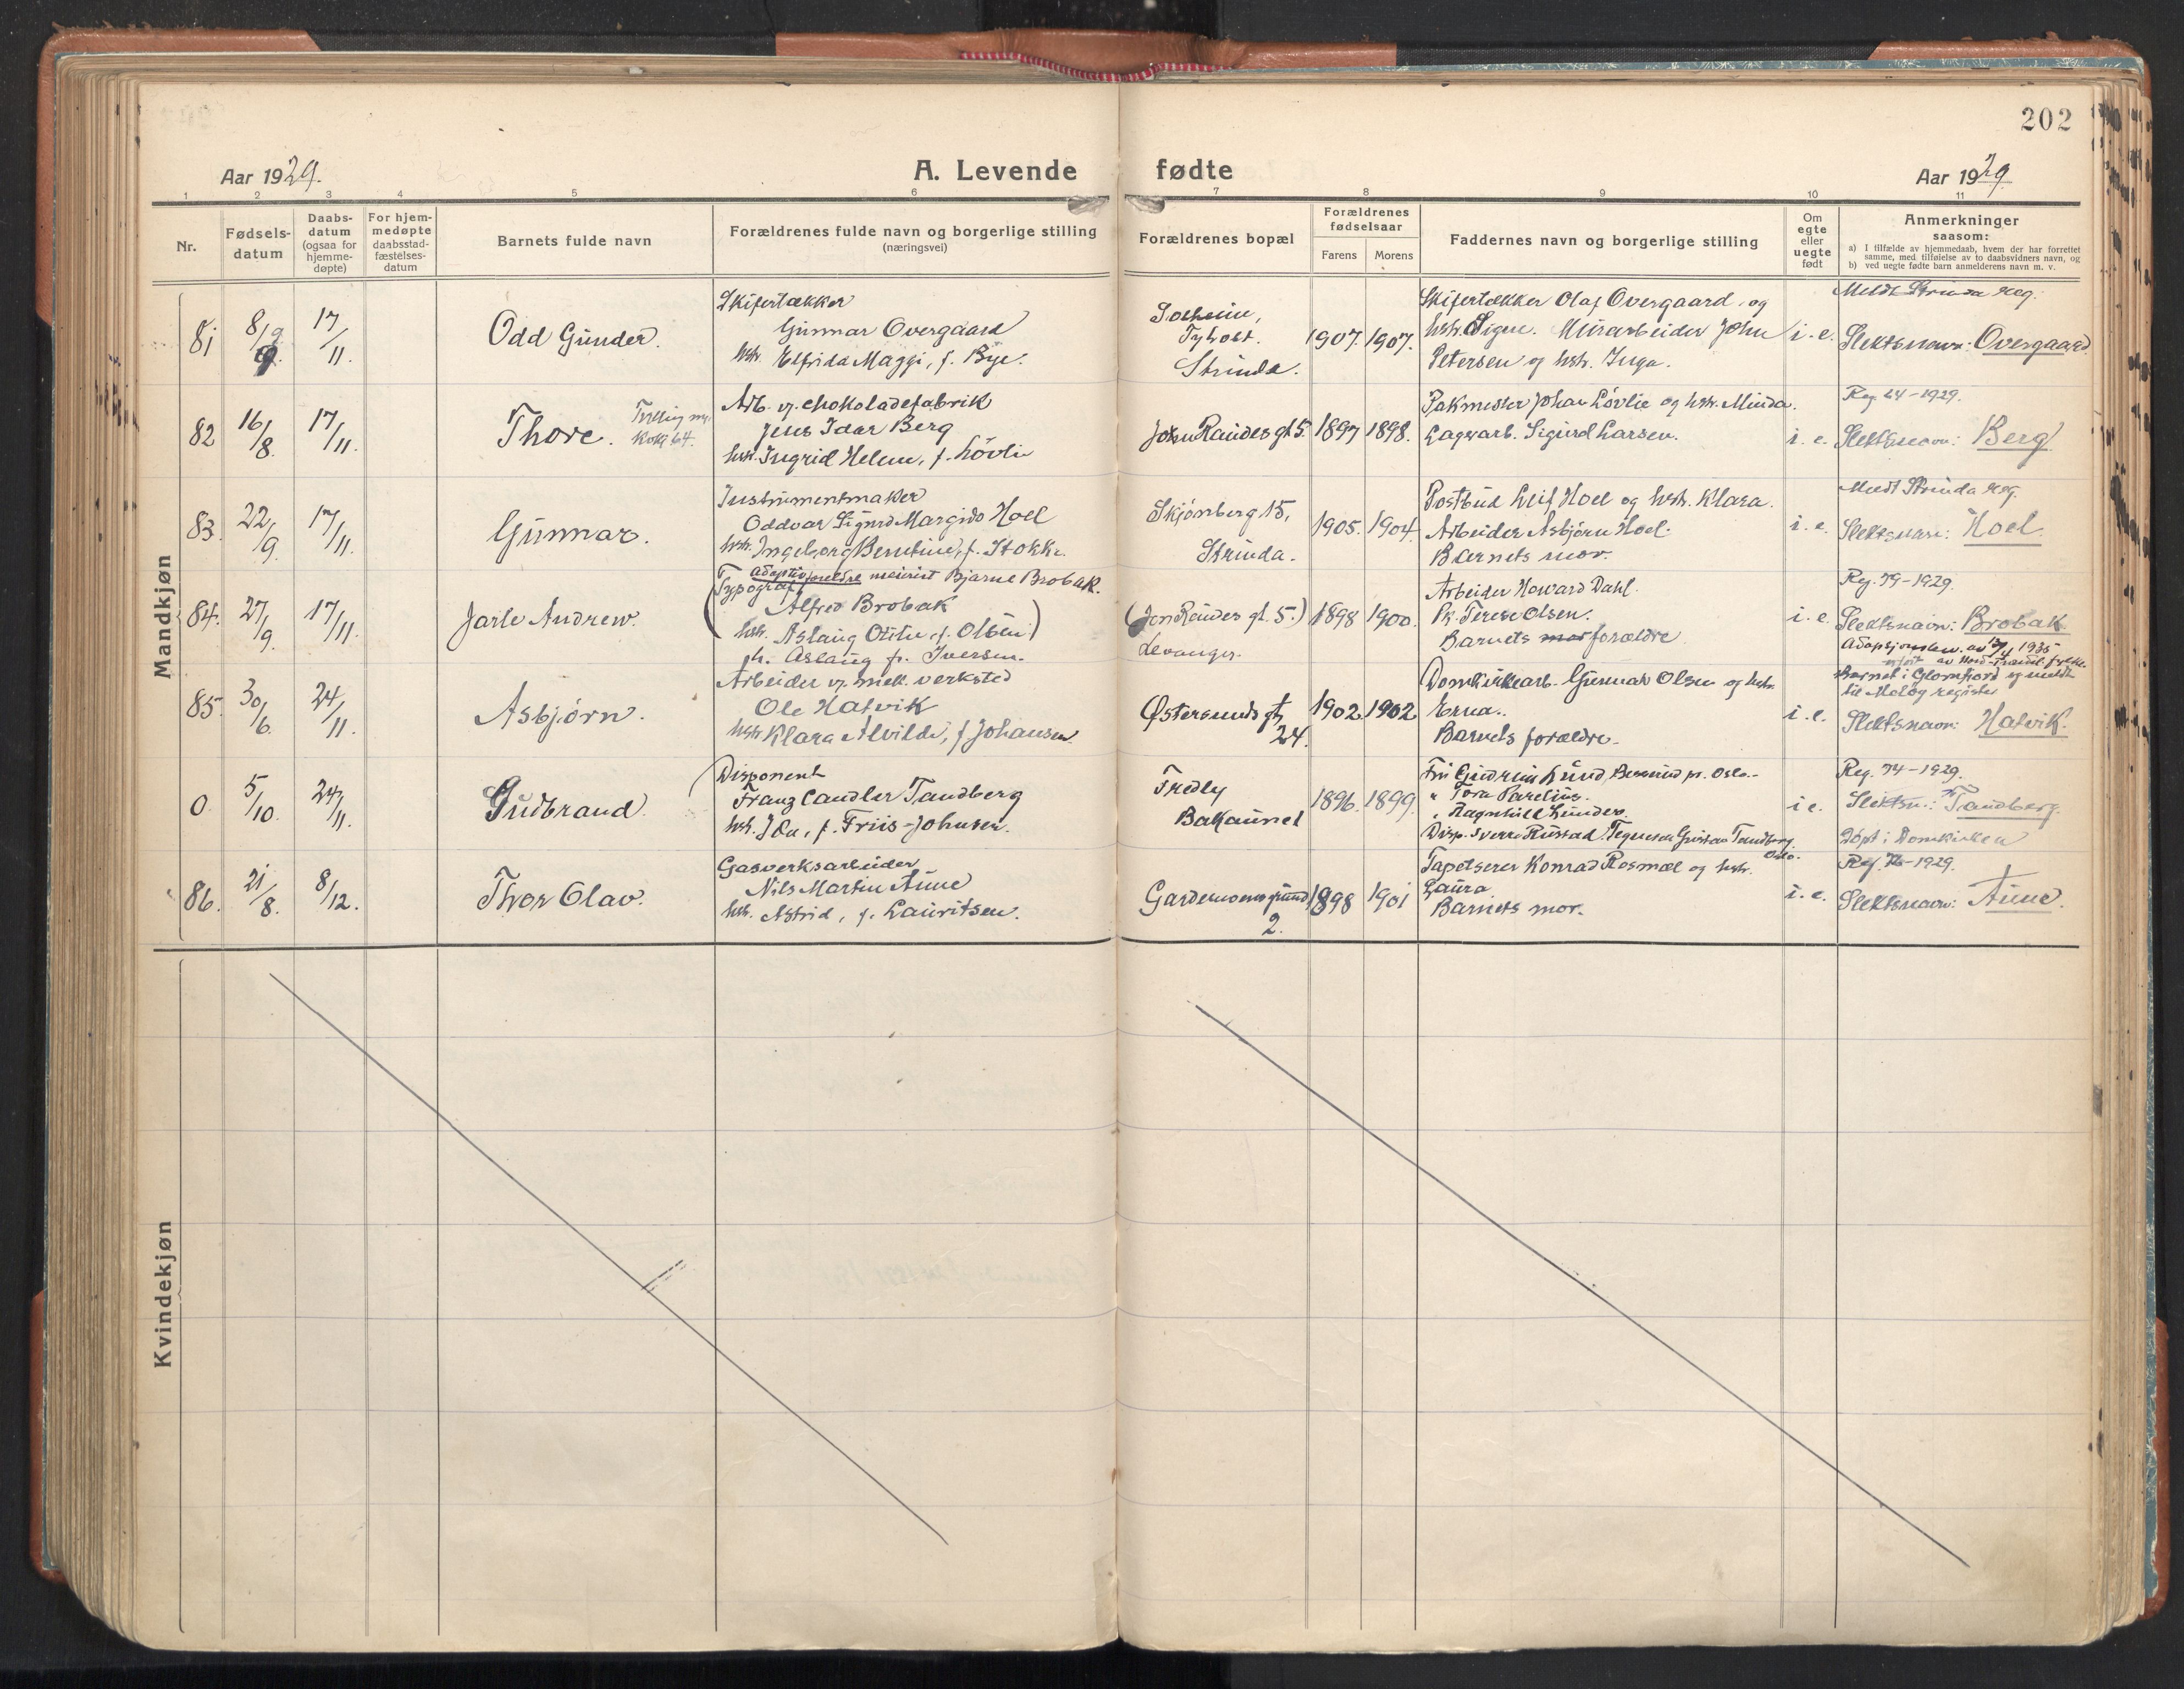 202
Aar 1929.
A. Levende fødte
Aar 1929
1 2 3 4 5 6 7 8 9 10 11
Nr.
Fødselsdatum
Daabsdatum (ogsaa for hjemmedøpte)
For hjemmedøpte daabsstadfæstelsesdatum
Barnets fulde navn
Forældrenes fulde navn og borgerlige stilling (næringsvei)
Forældrenes bopæl
Forældrenes fødselsaar
Farens
Morens
Faddernes navn og borgerlige stilling
Om egte eller uegte født
Anmerkninger saasom:
a) I tilfælde av hjemmedaab, hvem der har forrettet samme, med tilføielse av to daabsvidners navn, og
b) ved uegte fødte barn anmelderens navn m. v.
Mandkjøn
81 8/9 17/11.
Odd Gunder.
Skifertækker
Gunnar Overgaard
hstr. Elfrida Maggi, f. Bye.
Solheim,
Tyholt.
Strinda.
1907. 1907.
Skifertækker Olaf Overgaard og
hstr. Signe. Murarbeider John
Petersen og hstr. Inga.
i. e.
Meldt Strinda reg.
Slektsnavn: Overgaard
82 16/8. 17/11.
Thore. Tvilling m.
Kv. 64.
Arb. v. chokoladefabrik
Jens Idar Berg
hstr. Ingrid Helene, f. Løvli
John Raudes gt 5.
1897 1898.
Pakmester Johan Løvlie og hstr. Minda.
Lagerarb. Sigurd Larsen.
i. e.
Reg. 64-1929.
Slektsnavn: Berg
83. 22/9. 17/11.
Gunnar.
Instrumentmaker
Oddvar Sigurd Margido Hoel
hstr. Ingeborg Berntine, f. Stokke.
Skjønberg 15,
Strinda.
1905. 1904.
Postbud Leif Hoel og hstr. Klara.
Arbeider Asbjørn Hoel.
Barnets mor.
i. e.
Meldt Strinda reg.
Slektsnavn: Hoel.
84. 27/9. 17/11.
Jarle Andrew.
adoptivforeldre meierist Bjarne Brobak.
(Typograf
Alfred Brobak
hstr. Aslaug Otilie, f. Olsen)
h. Aslaug f. Iversen.
(Jon Raudes gt. 5.)
Levanger.
1898 1900.
Arbeider Howard Dahl.
Pk. Terese Olsen.
Barnets mor forældre
i. e.
Reg. 79-1929.
Slektsnavn: Brobak
Adopsjonsbev. av 13/4 1935
utferd. av Nord-Trøndel. fylke.
Barnet i Glomfjord og meldt
til Meløy register
85. 30/6. 24/11.
Asbjørn.
Arbeider v. mek. verksted
Ole Hatvik
hstr. Klara Alvilde, f. Johansen.
Østersunds gt.
24.
1902. 1902
Domkirkearb. Gunnar Olsen og hstr.
Erna.
Barnets forældre.
i. e.
Slektsnavn: Hatvik.
0. 5/10. 24/11.
Gudbrand.
Disponent
Franz Candler Tandberg
hstr. Ida, f. Friis-Johnsen.
Fredly
Bakaunet
1896. 1899.
Fru Gudrun Lund, Bestum pr. Oslo.
" Tora Parelius.
" Ragnhild Lunder.
Disp. Sverre Rustad. Tegneren Gustav Tandberg,
Oslo.
i e.
Reg. 74-1929.
Slektsn.: Tandberg.
Døpt i Domkirken
86. 21/8. 8/12.
Thor Olav.
Gasverksarbeider
Nils Martin Aune
hstr. Astrid, f. Lauritsen.
Gardemoens grund
2.
1898 1901
Tapetserer Konrad Rosmæl og hstr.
Laura
Barnets mor.
i. e.
Reg. 76-1929.
Slektsnavn: Aune.
Kvindekjøn